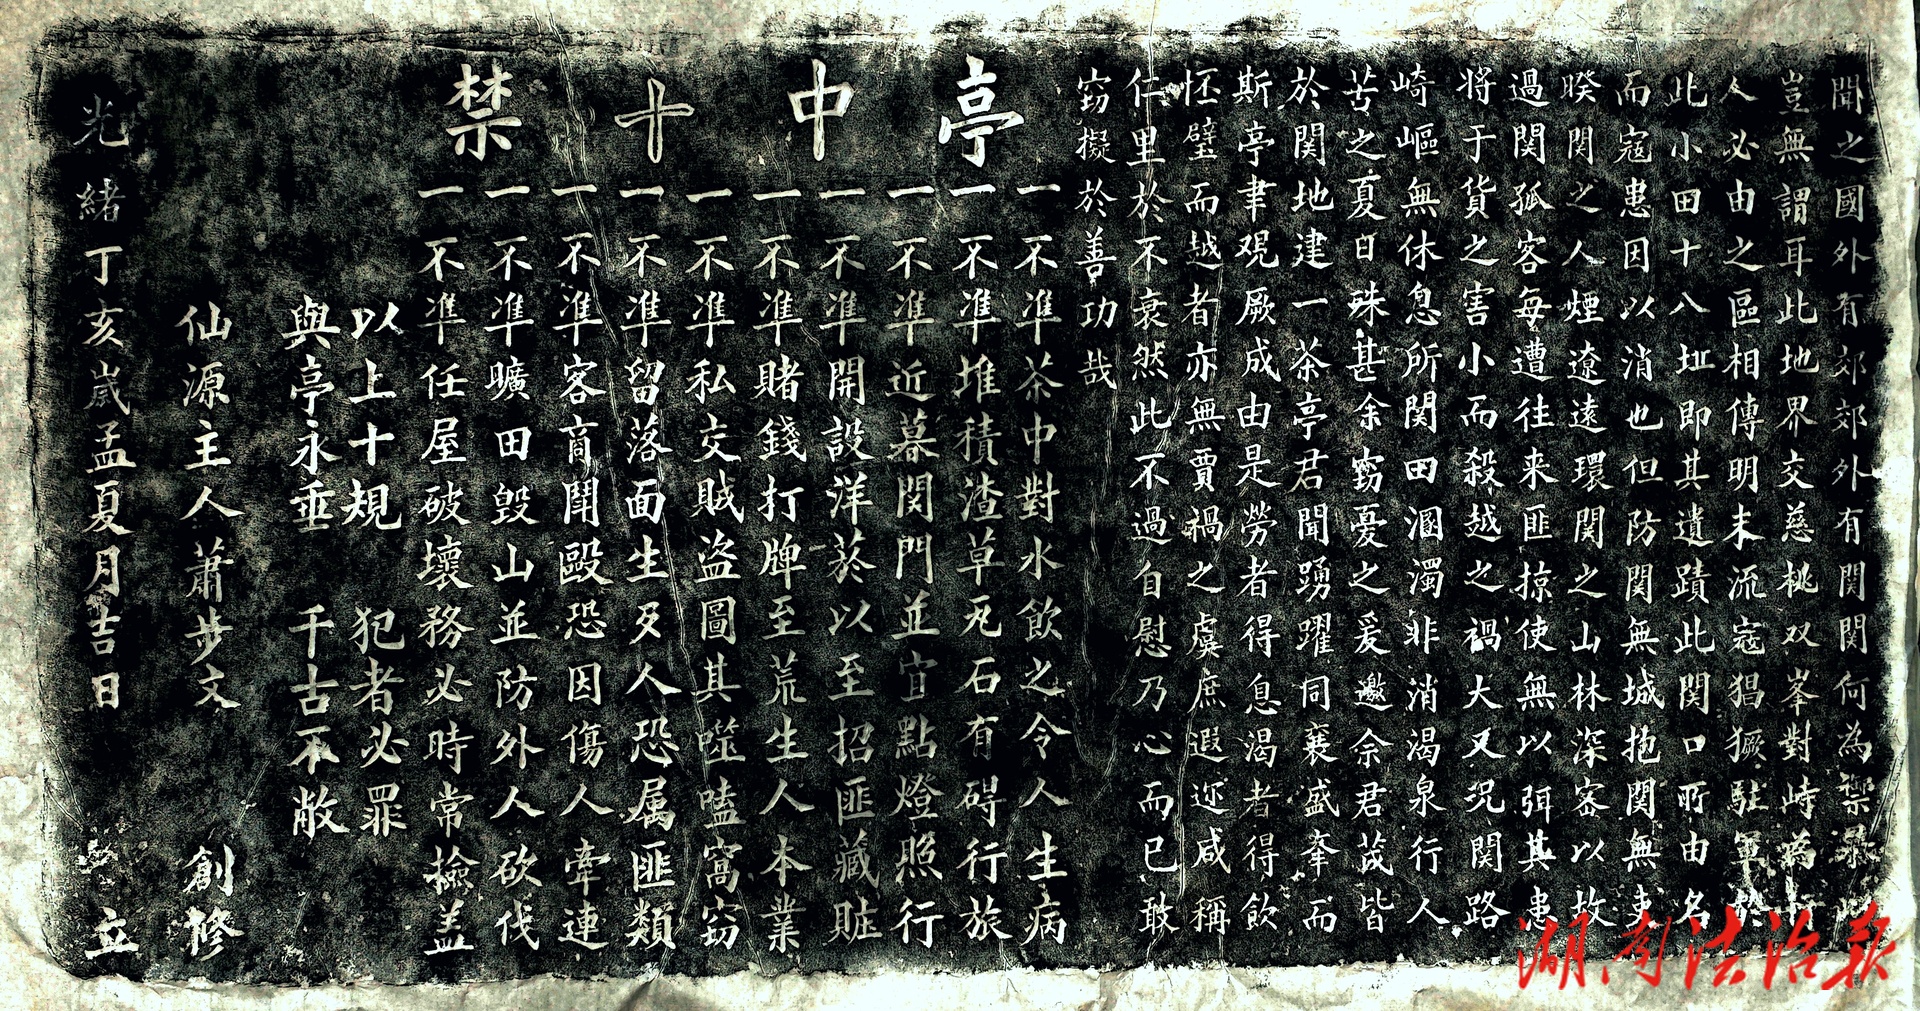 聞之國外有郊郊外有関関何為禦暴
豈無謂耳此地界交慈桃双峯對峙為
人必由之區相傳明末流寇猖獗駐軍於
此小田十八坵即其遺蹟此関口所由名
而寇患因以消也但防関無城抱関無吏
暌関之人煙遼遠環関之山林深宻以故
過関孤客每遭往来匪掠使無以弭其患
将于貨之害小而殺越之禍大又况関路
崎嶇無休息所関田溷濁非消渴泉行人
苦之夏日殊甚余窃憂之爰邀余君茂皆
於関地建一茶亭君聞踴躍同襄盛舉而
斯亭聿观厥成由是勞者得息渴者得飲
怀璧而越者亦無賈禍之虞庶遐迩咸稱
仁里於不衰然此不過自慰乃心而已敢
窃擬於善功哉
亭中十禁
一不凖茶中對水飲之令人生病
一不凖堆積渣草瓦石有碍行旅
一不凖近暮関門並宜點燈照行
一不凖開設洋菸以至招匪藏賍
一不凖賭錢打牌至荒生人本業
一不凖私交贼盗圖其噬嗑窩窃
一不凖留落面生歹人恐属匪類
一不凖客商鬪毆恐因傷人牽連
一不凖曠田毀山並防外人砍伐
一不凖任屋破壞務必時常撿盖
以上十規 犯者必罪
與亭永垂 千古不敝
仙源主人蕭步文 創修
光緒丁亥歲孟夏月吉日 立
湖南法治報